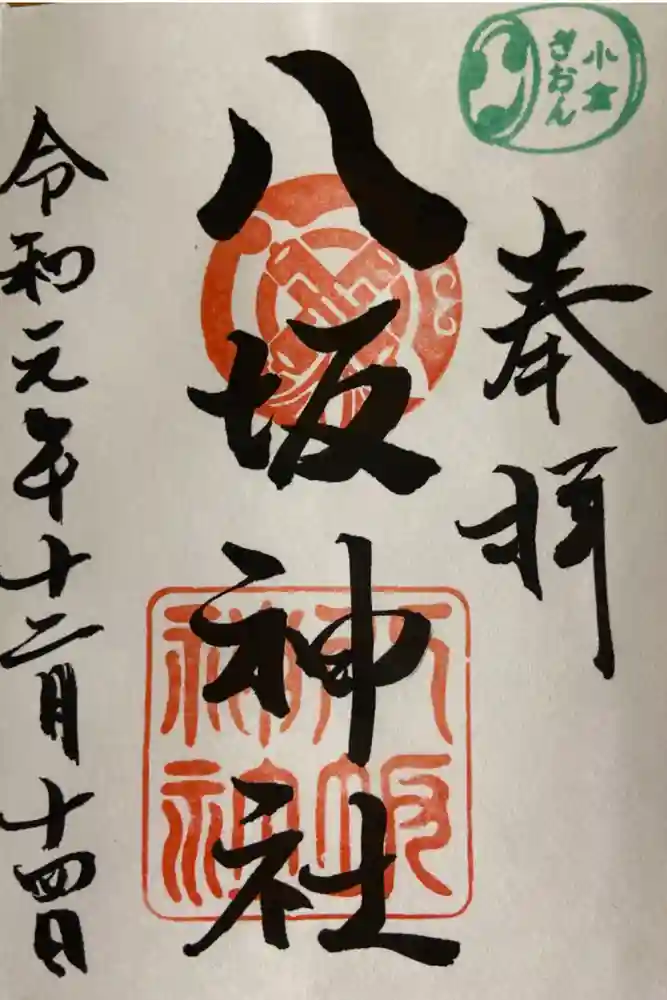 小倉
ぎおん
奉拝
八坂神社
令和元年十二月十四日